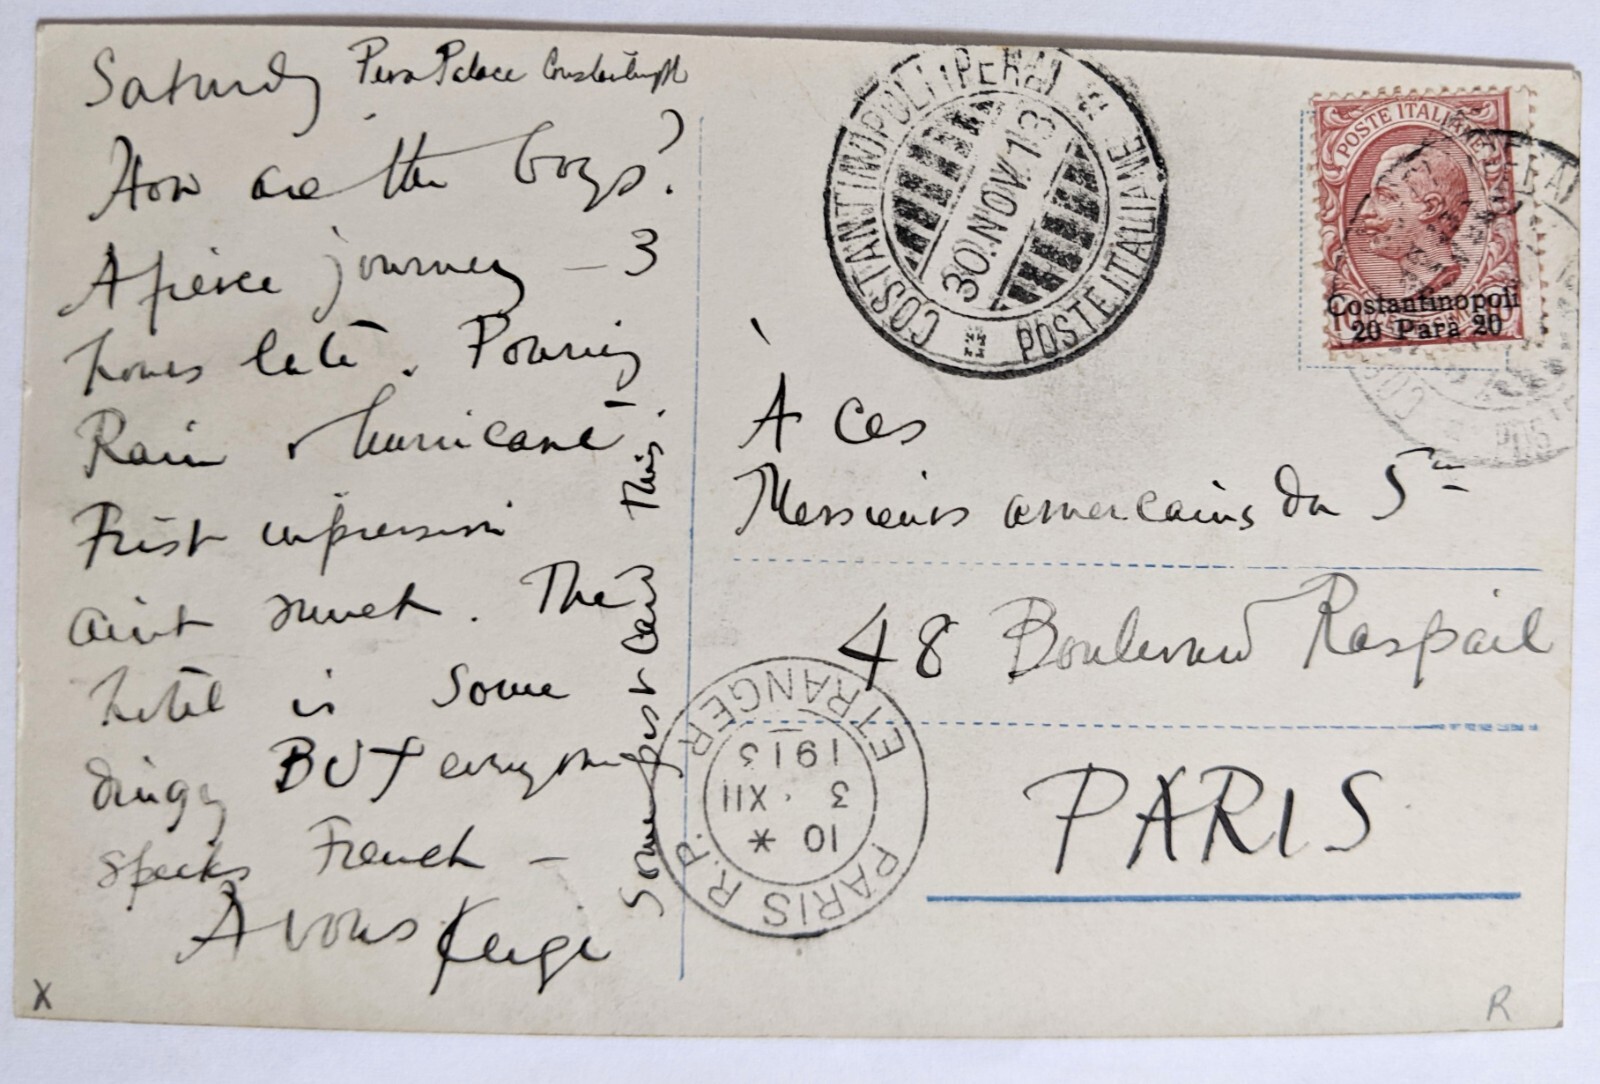 Saturdy Pera Palace Constantinople
How are the boys?
A fierce journey – 3
hours late. Pouring
Rain & hurricane
First impression
aint much. The
hotel is some
dingy BUT everyone
speaks French –
A vous
Some post card this.
COSTANTINOPOLI (PERA)
POSTE ITALIANE
30.NOV.13
POSTE ITALIANE
Costantinopoli
20 Para 20
À Ces
Messieurs americains du 5me
48 Boulevard Raspail
PARIS
PARIS R.P.
ETRANGER
10 *
3 . XII
1913
X
R